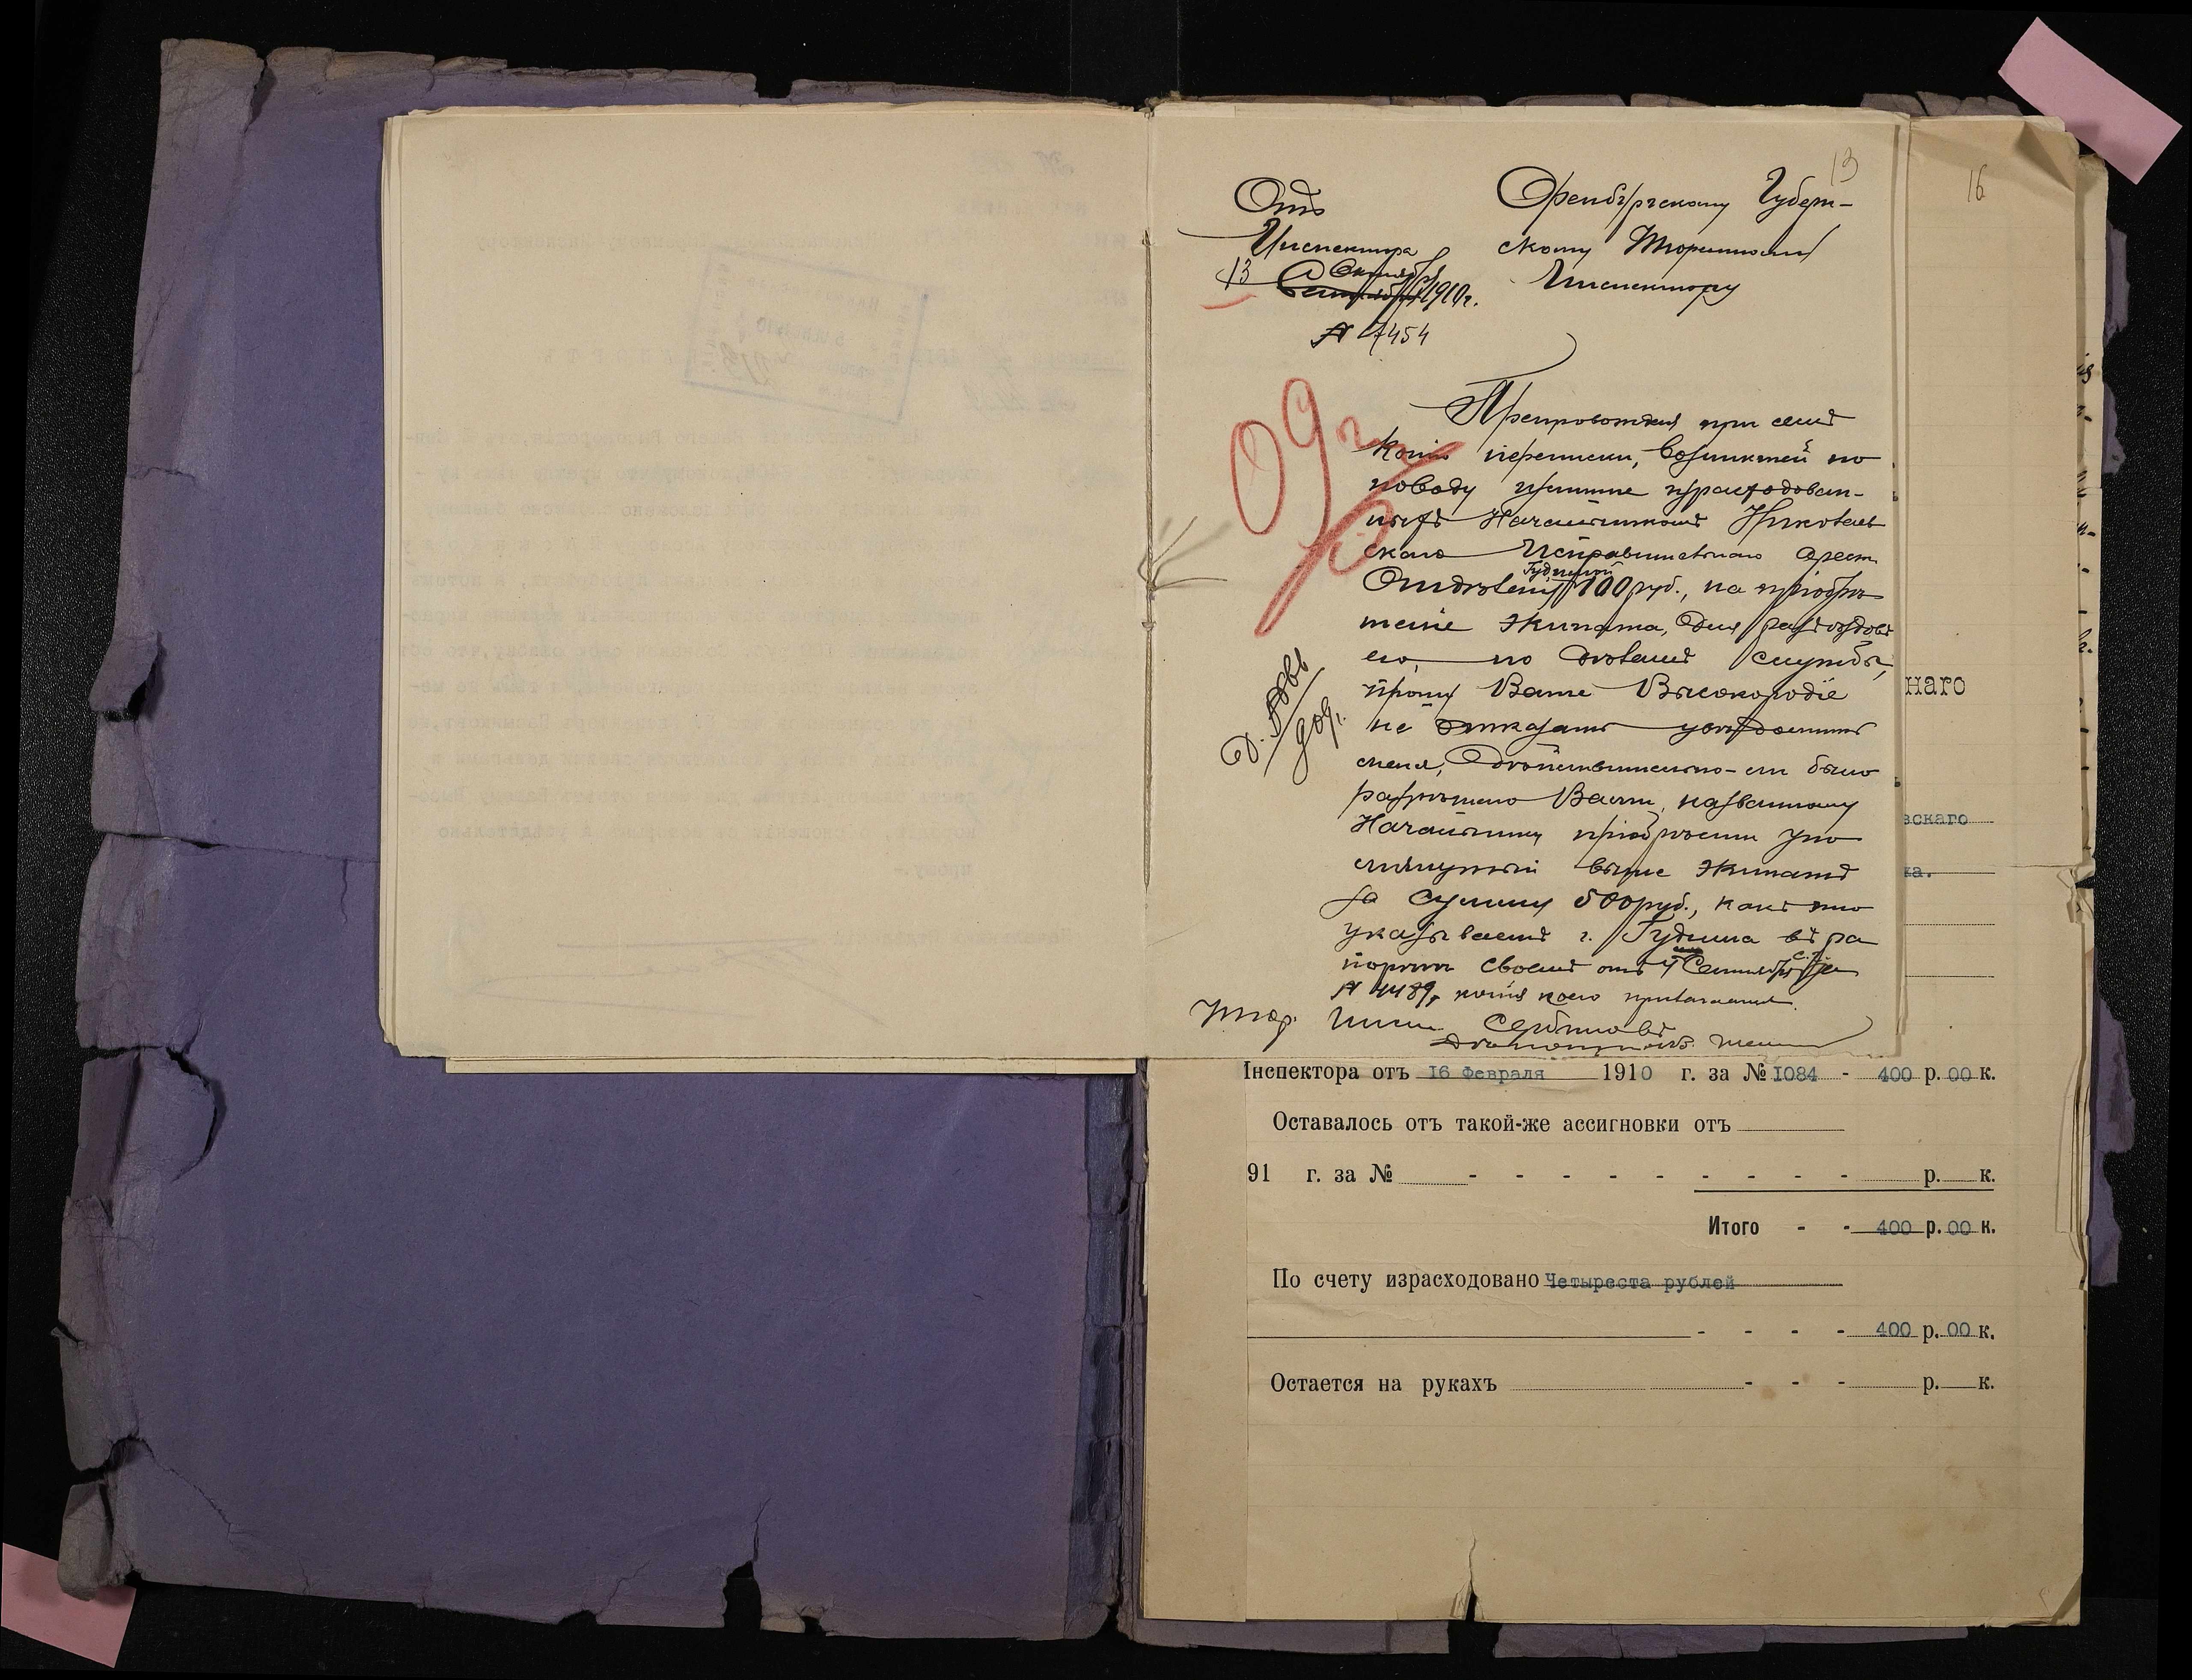 13
16
Отъ
Инспектора
13 Октября
Сентября 1910 г.
№ 7454
Оренбургскому Губерн-
скому Тюремному
Инспектору
09 г.
Препровождая при семъ
копію переписки, возникшей по
поводу излишне израсходован-
ныхъ Начальникомъ Николаев
скаго Исправительнаго Арест.
Отдѣленія Гудимой 100 руб., на пріобрѣ
теніе экипажа, для разъѣздовъ
его, по дѣламъ службы,
прошу Ваше Высокородіе
не отказать увѣдомить
меня, дѣйствительно-ли было
разрѣшено Вами, названному
Начальнику пріобрѣсти упо
мянутый выше экипажъ
за сумму 500 руб., какъ это
указываетъ г. Гудима въ ра
портѣ своемъ отъ 4 Сентября с.г. за
№ 4489, копія коего прилагается.
Тюр. Инсп.
Дѣлопроизв.
наго
вскаго
ка.
Інспектора отъ 16 Февраля 1910 г. за № 1084 - 400 р. 00 к.
Оставалось отъ такой-же ассигновки отъ
91 г. за № - - - - - - - - - р. к.
Итого - - 400 р. 00 к.
По счету израсходовано Четыреста рублей
- - - - 400 р. 00 к.
Остается на рукахъ - - - р. к.